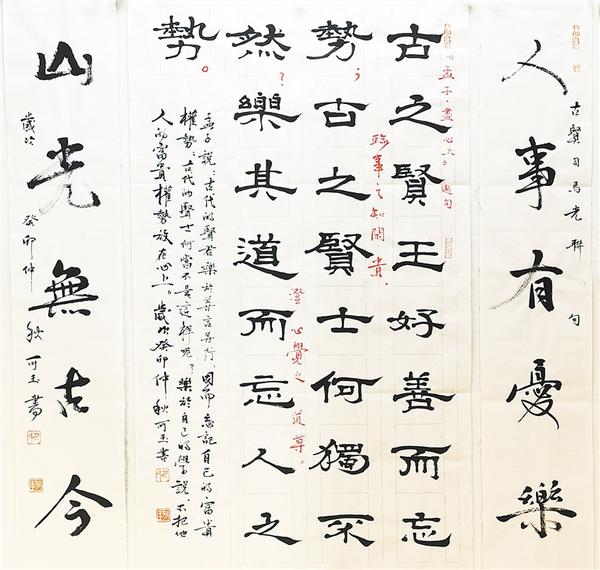 古賢司馬光聯句
人事有憂樂
孟子·盡心上 選句
古之賢王好善而忘
臨事之知閑貴、
勢；古之賢士何獨不
澄心覺之道尊。
然？樂其道而忘人之
勢。
孟子說：古代的賢君樂於善言善行因而忘記自己的富貴
權勢、古代的賢士何嘗不是這樣呢？樂於自己的學說、不把他
人的富貴權勢放在心上。歲次癸卯仲秋可玉書
山光無古今
歲次癸卯仲秋可玉書